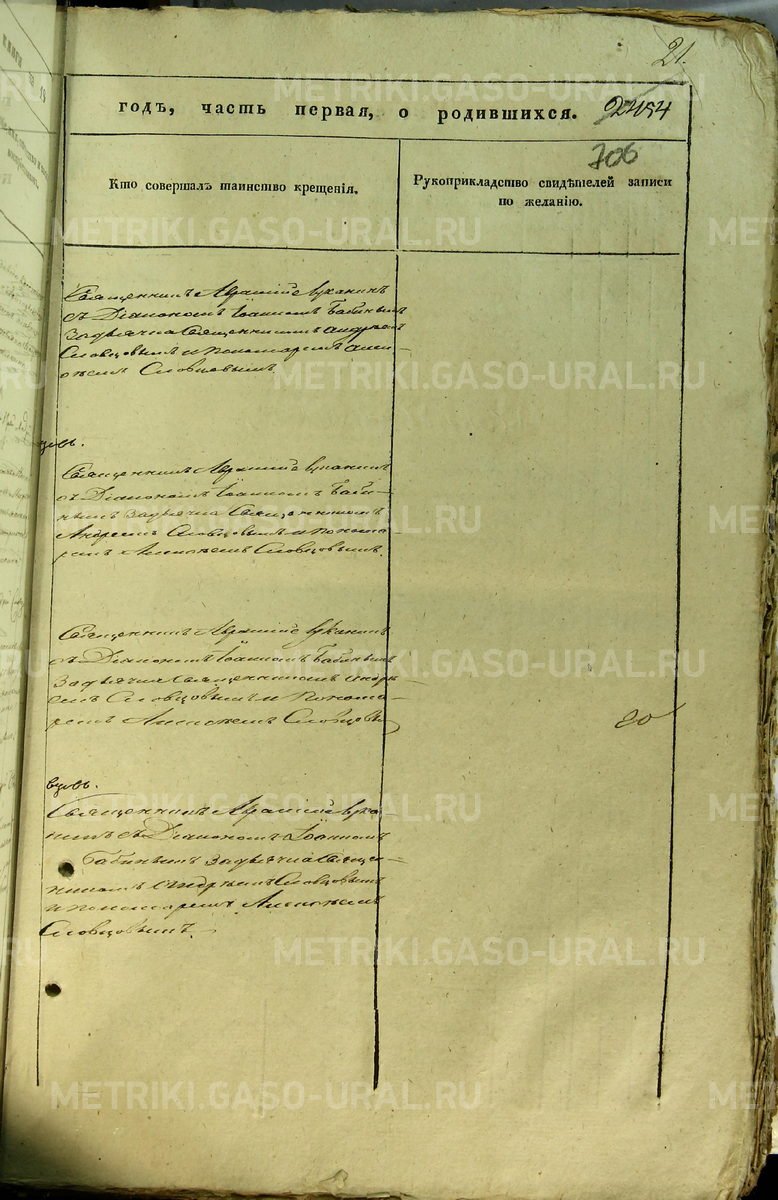 21.
годъ, часть первая, о родившихся. 2454
706
Кто совершалъ таинство крещенія.
Рукоприкладство свидѣтелей записи
по желанію.
Священникъ Луканинъ
съ Діакономъ Іоанномъ Бабинымъ
За дьячка Священникомъ Андреемъ
Словцовымъ и пономаремъ Алек-
сѣемъ Словцовымъ
Священникъ Луканинъ
съ Діакономъ Іоанномъ Баби-
нымъ за дьячка Священникомъ
Андреемъ Словцовымъ и понома-
ремъ Алексѣемъ Словцовымъ.
Священникъ Луканинъ
съ Діакономъ Іоанномъ Бабинымъ
За дьячка Священникомъ Андре-
емъ Словцовымъ и понома-
ремъ Алексѣемъ Словцовы
20
вцовъ.
Священникъ Лука-
нинъ съ Діакономъ Іоанномъ
Бабинымъ за дьячка Священ-
никомъ Андреемъ Словцовымъ
и пономаремъ Алексѣемъ
Словцовымъ.
METRIKI.GASO-URAL.RU